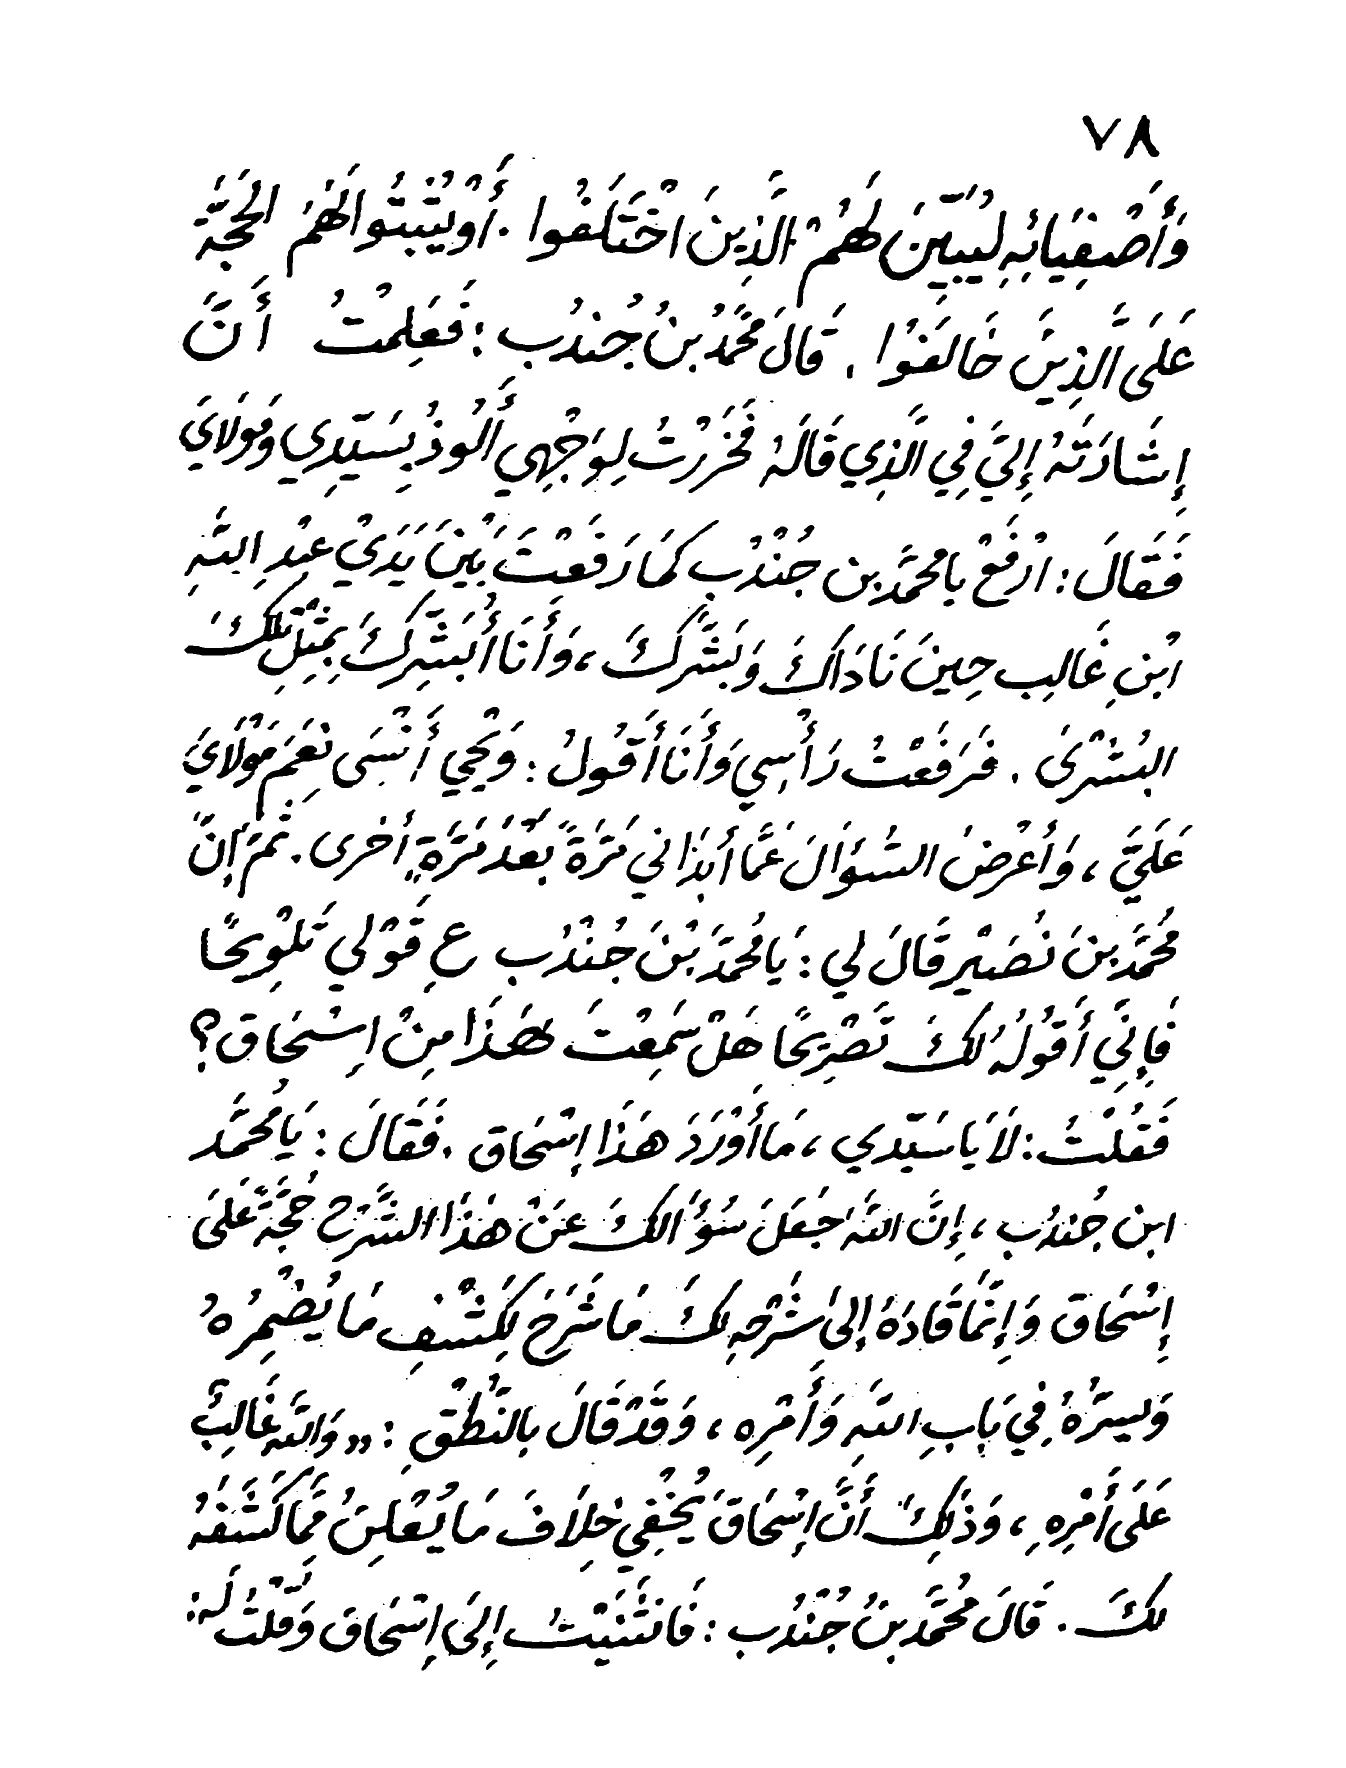 ٧٨
وَأَصْفِيَائِهِ لِيُبَيِّنَ لَهُمْ الَّذِينَ اخْتَلَفُوا . أَوْ يُثْبِتُوا لَهُمْ الحُجَّةَ
عَلَى الَّذِينَ خَالَفُوا . قَالَ مُحَمَّدُ بنُ جُندُبِ : فَعَلِمْتُ أَنَّ
إِشَارَتَهُ إِلَيَّ فِي الَّذِي قَالَهُ فَخَرَرْتُ لِوَجْهِي أَلُوذُ بِسَيِّدِي وَمَولَايَ
فَقَالَ : ارْفَعْ يا محمَّد بن جُنْدُبِ كَمَا رَفَعْتَ بَيْنَ يَدَيْ عبْدِ اللَّهِ
ابْنِ غَالِبِ حِينَ نَادَاكَ وَبَشَّرَكَ ، وَأَنَا أُبَشِّرُكَ بِمِثْلِ تِلْكَ
البُشْرَى . فَرَفَعْتُ رَأْسِي وَأَنَا أَقُولُ : وَيْحِي أَنْسَى نِعَمَ مَوْلَايَ
عَلَيَّ ، وَأُعْرِضُ السُّؤَالَ عَمَّا أَبدَاني مَرَةً بَعْدَ مَرَّةٍ أخرى . ثُمَّ إِنَّ
مُحَمَّدَ بنَ نُصَيْرٍ قَالَ لي : يَا مُحَمَّدَ بْنَ جُنْدُبِ عِ قَوْلي تَلْوِيحًا
فَإِنِّي أَقُولُهُ لَكَ تَصْرِيحًا هَلْ سَمِعْتَ هَذَا مِنْ اِسْحَاق ؟
فَقُلْتُ : لَا يَا سَيِّدي ، مَا أَوْرَدَ هَذَا إِسْحَاق . فَقَالَ : يَا مُحَمَّد
ابن جُندُبِ ، إِنَّ اللَّهَ جَعَلَ سُؤَالكَ عَنْ هَذَا الشَّرْحِ حُجَّةً عَلَى
إِسْحَاق وَإِنَّمَا قَادَهُ إِلَى شَرْحِهِ لكَ مَا شَرَحَ لِكَشْفِ مَا يُضْمِرُهُ
وَيسرُّهُ فِي بَابِ اللَّهِ وَأَمْرِهِ ، وَقَدْ قَالَ بِالنُّطْقِ : « وَاللَّهُ غَالِبٌ
عَلَى أَمْرِهِ ، وَذَلِكَ أَنَّ إِسْحَاقَ يُخْفِي خِلَافَ مَا يُعْلِنُ مِمَّا كَشَفَهُ
لكَ . قَالَ مُحَمَّد بنُ جُنْدُبِ : فَانْثَنَيْتُ إِلَى إِسْحَاق وَقُلْتُ لَهُ :